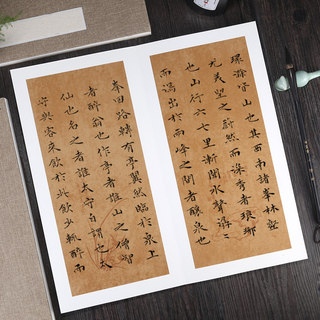 環滁皆山也其西南諸峯林壑
尤美望之蔚然而深秀者琅琊
也山行六七里漸聞水聲潺〻
而瀉出於兩峰之間者釀泉也
峯回路轉有亭翼然臨於泉上
者醉翁也作亭者誰山之僧智
仙也名之者誰太守自謂也太
守與客來飲於此飲少輒醉而